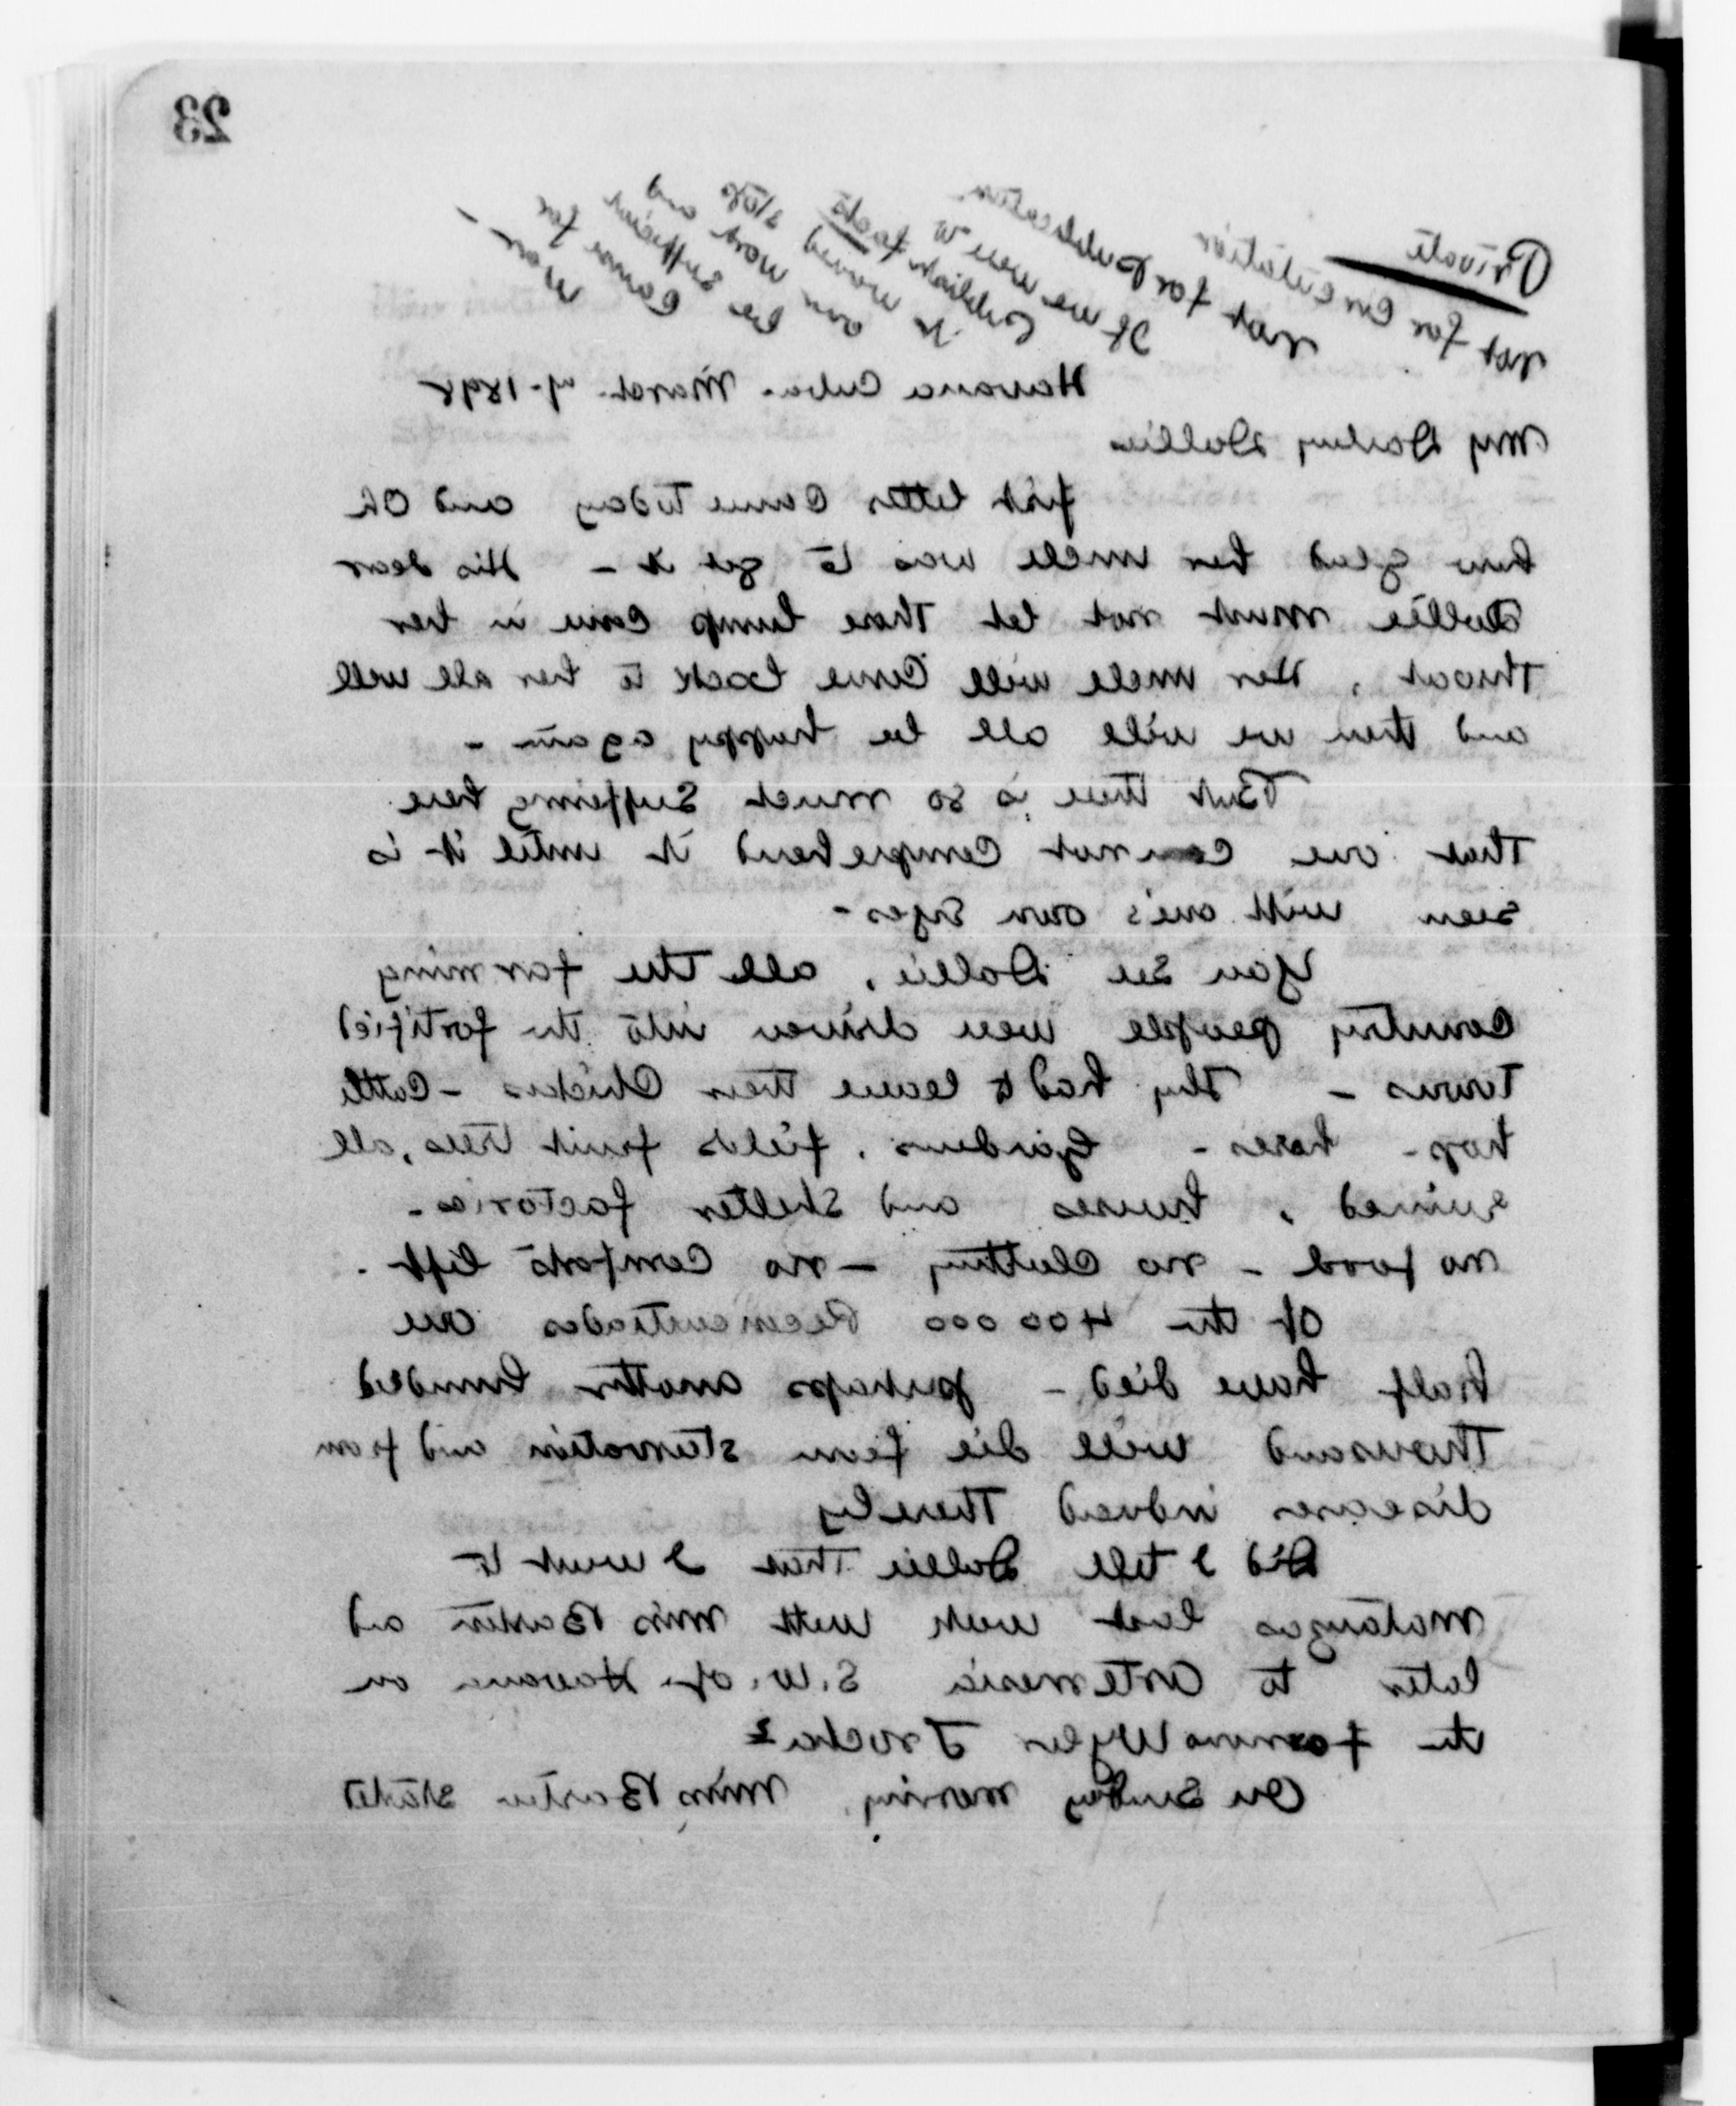 23
Private
Not for Circulation
Not for publication.
If we were to
publish facts
it
our
war and
be sufficient
Cause for
War -
Havana Cuba. March. 7. 1898
My Darling Dollie
first letter Came Today and Oh
how glad her uncle was to get it - His dear
Dollie must not let those lumps come in her
Throat, Her uncle will Come back to her all well
and then we will all be happy again -
But there is so much Suffering here
That one cannot Comprehend it until it is
seen with one's own Eyes -
You see Dollie, all the farming
Country people were driven into the fortified
Towns - They had to leave their Chickens - Cattle
hogs - horses - Gardens, fields fruit trees, all
ruined, houses and shelter factories -
no food - no Clothing - no Comforts left.
Of the 400 000 Reconcentrados one
half have died - perhaps another hundred
Thousand will die from starvation and from
diseases induced Thereby
Did I tell Dollie That I went to
Matanzas last week with Miss Barton and
later to Artemesia S.W. of Havana on
the famous Wyler Trocha?
On Sunday morning, Miss Barton started